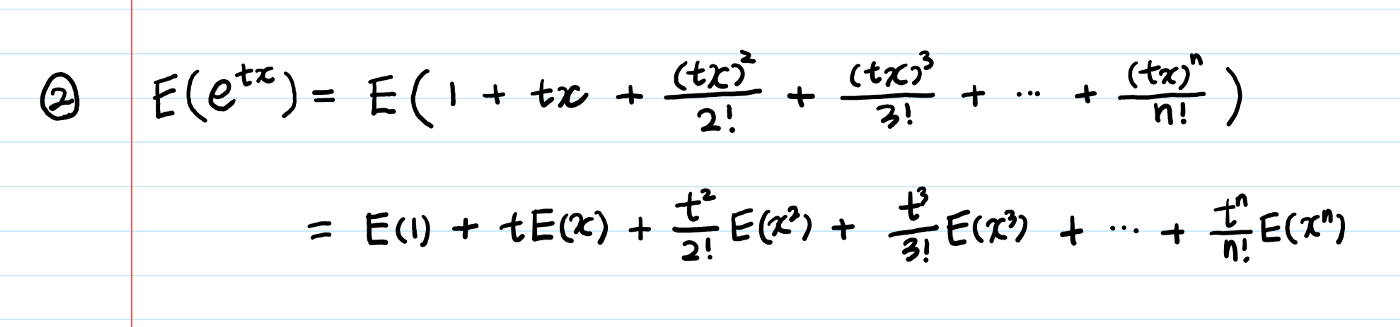 ② E(e^{tx}) = E(1 + tx + \frac{(tx)^2}{2!} + \frac{(tx)^3}{3!} + ⋯ + \frac{(tx)^n}{n!})
= E(1) + tE(x) + \frac{t^2}{2!}E(x^2) + \frac{t^3}{3!}E(x^3) + ⋯ + \frac{t^n}{n!}E(x^n)